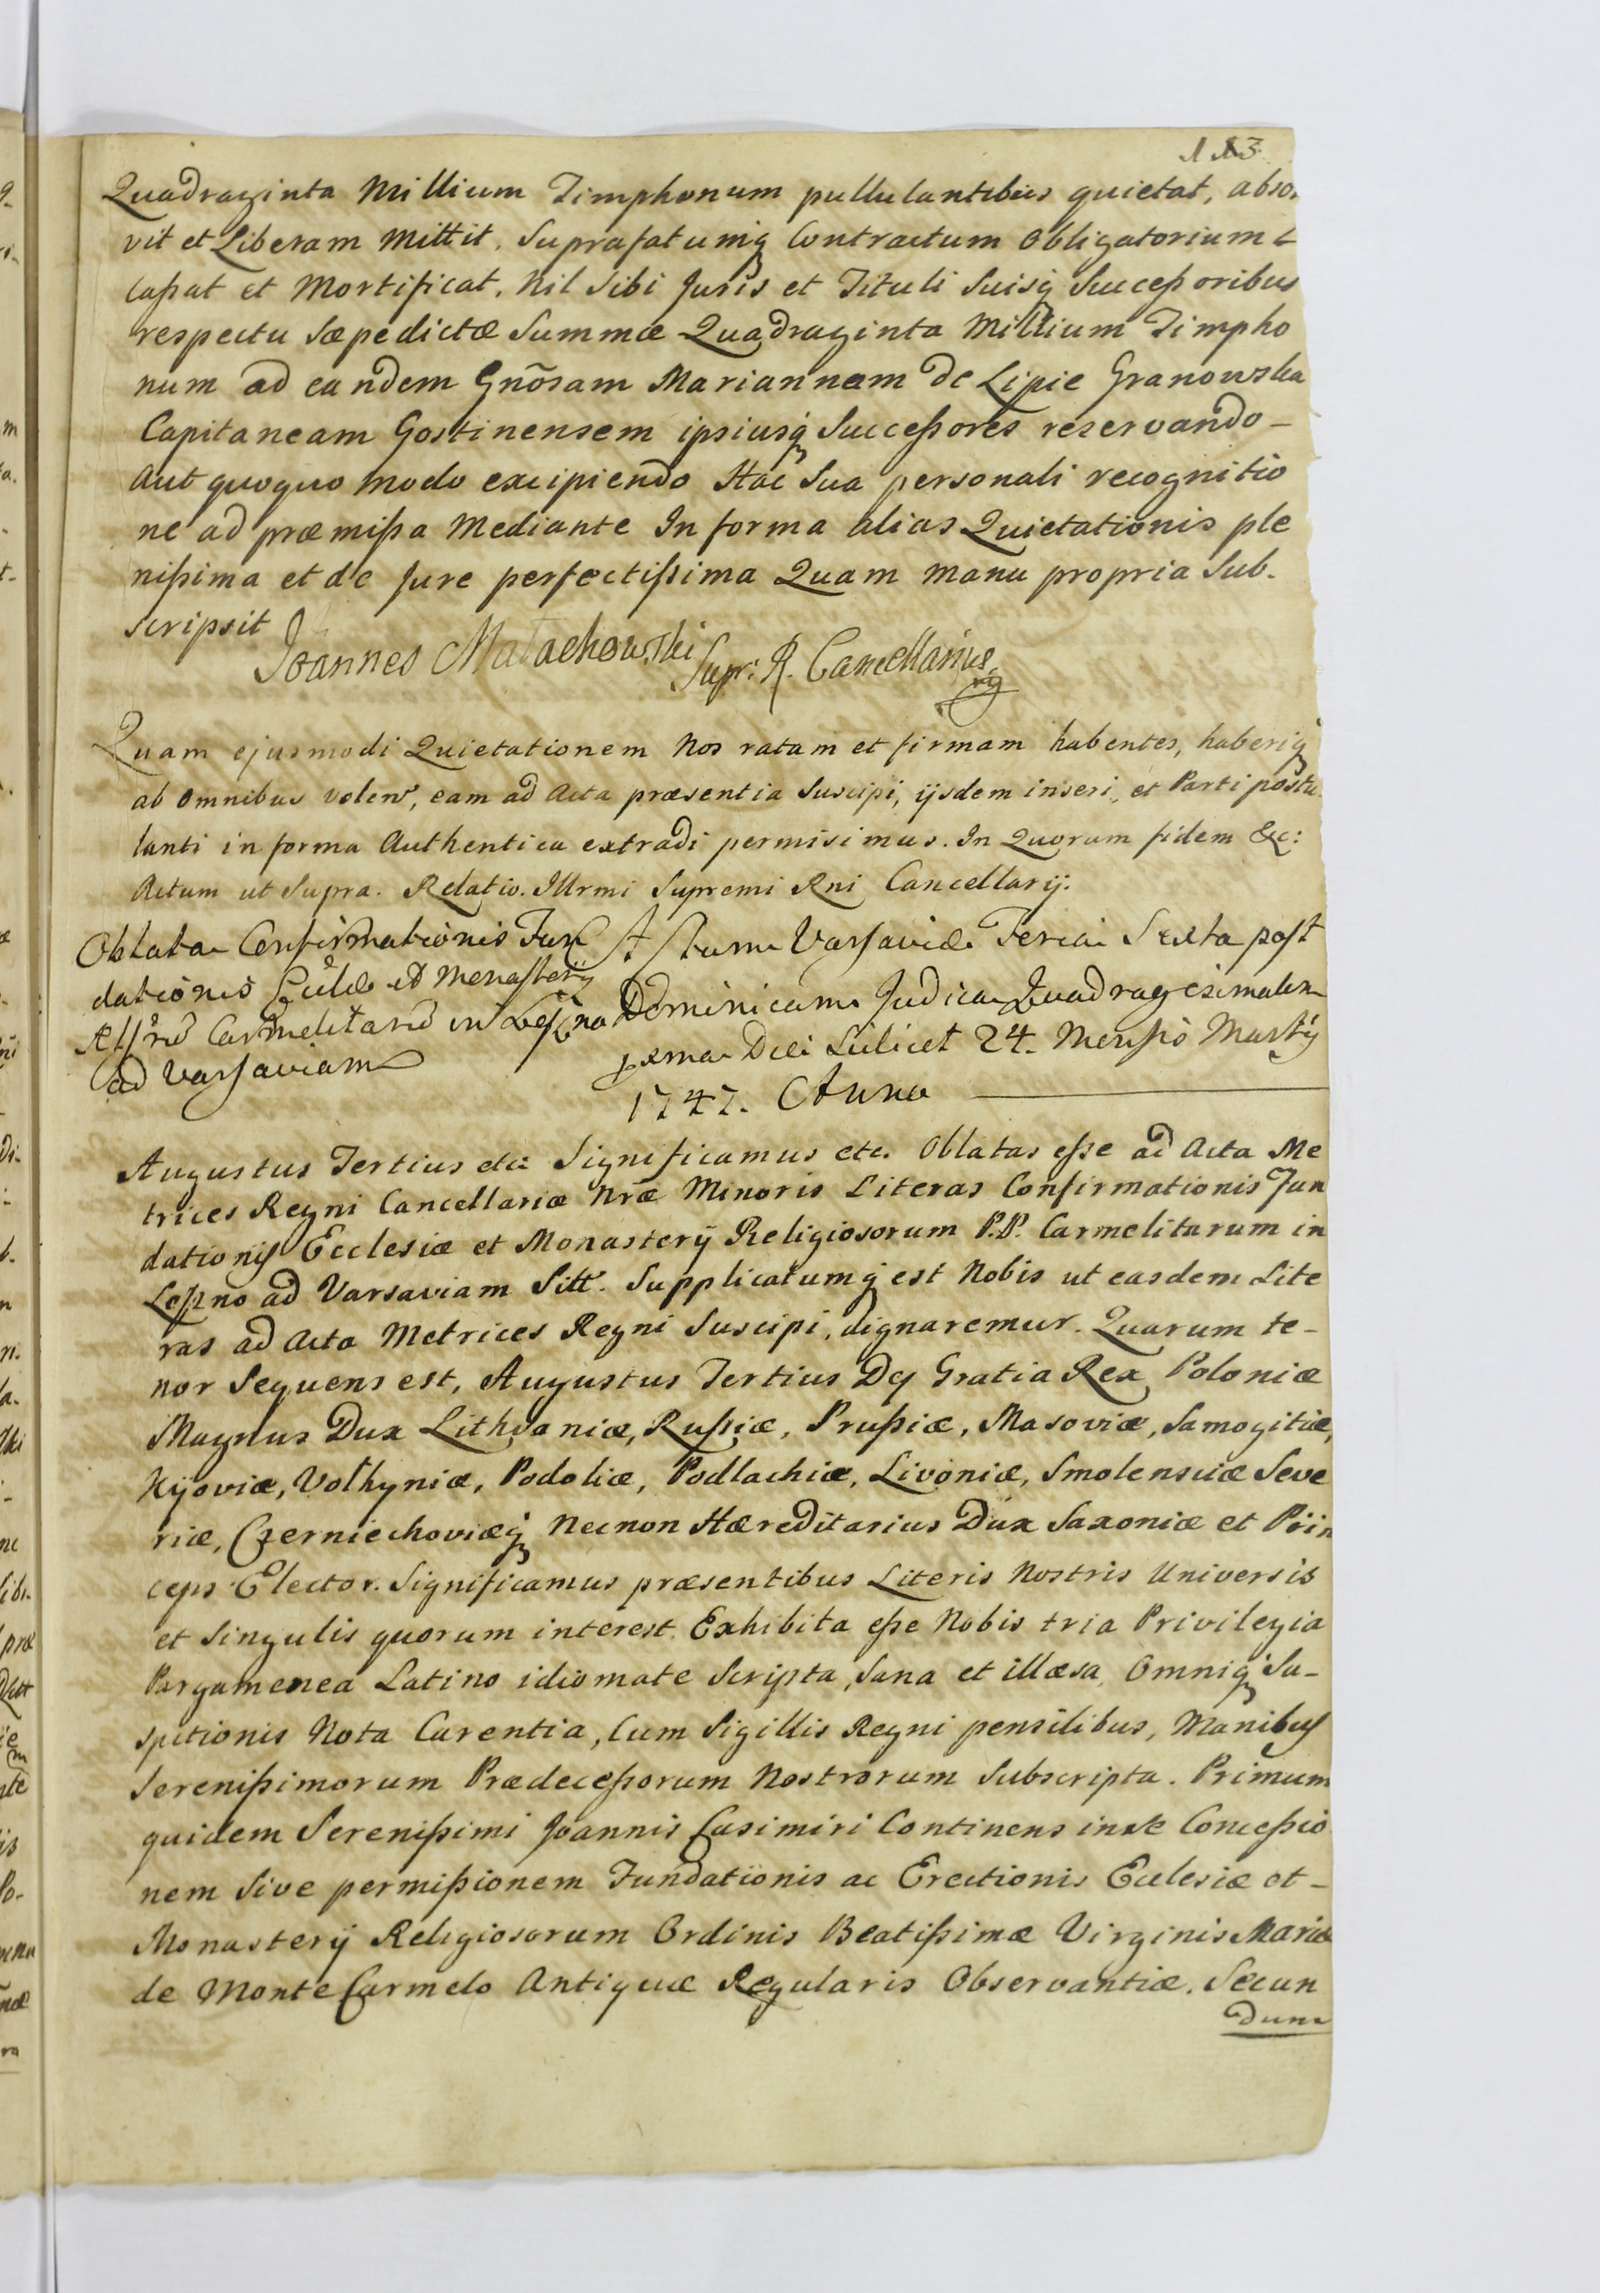 113
Quadraginta Millium Timphonum pullulantibus quietat, absol
vit et Liberam Mittit. Suprafatumq Contractum Obligatorium
Caßat et Mortificat. Nil Sibi Juris et Tituli Suisq Succeßoribus
respectu Sæpedictæ Summæ Quadraginta Millium Timpho
num ad eandem Gnõsam Mariannam de Lipie Granowska
Capitaneam Gostinensem ipsiusq Succeßores reservando –
Aut quoquo modo excipiendo Hac Sua personali recognitio
ne ad præmißa Mediante In forma alias Quietationis ple
nißima et de Jure perfectißima Quam manu propria Sub-
scripsit
Joannes Małachowski Supr: R. Cancellarius
Quam ejusmodi Quietationem Nos ratam et firmam habentes, haberiq
ab omnibus volen, eam ad Acta præsentia Suscipi, ijsdem inseri, et Parti postu
lanti in forma Authentica extradi permisimus. In Quorum fidem &c:
Actum ut Supra. Relatio. Illrmi Supremi Rni Cancellarij.
Oblata Confirmationis Fun
dationis Ecclæ et Monasterij
Carmelitarũ in Leszno
ad Varsaviam
Actum Varsaviæ Feria Sexta post
Dominicam Judica Quadragesimalem
pxma Die Scilicet 24. Mensis Martij
1747. Anno
Augustus Tertius etc Significamus etc. Oblatas eße ad Acta Me
trices Regni Cancellariæ Nræ Minoris Literas Confirmationis Fun
dationis Ecclesiæ et Monasterij Religiosorum P.P. Carmelitarum in
Leszno ad Varsaviam Sitt. Supplicatumq est Nobis ut easdem Lite
ras ad Acta Metrices Regni Suscipi, dignaremur. Quarum te-
nor Sequens est, Augustus Tertius Dej Gratia Rex Poloniæ
Magnus Dux Lithvaniæ, Rußiæ, Prußiæ, Masoviæ, Samogitiæ,
Kijoviæ, Volhyniæ, Podoliæ, Podlachiæ, Livoniæ, Smolensciæ Seve
riæ, Czerniechoviæq Necnon Hæreditarius Dux Saxoniæ et Prin
ceps Elector. Significamus præsentibus Literis Nostris Universis
et Singulis quorum interest. Exhibita eße Nobis tria Privilegia
Pargamenea Latino idiomate Scripta, Sana et illæsa, Omniq Su-
spitionis Nota Carentia, Cum Sigillis Regni pensilibus, Manibus
Serenißimorum Prædeceßorum Nostrorum Subscripta. Primum
quidem Serenißimi Joannis Casimiri Continens in se Conceßio
nem Sive permißionem Fundationis ac Erectionis Ecclesiæ et –
Monasterij Religiosorum Ordinis Beatißimæ Virginis Mariæ
de Monte Carmelo Antiquæ Regularis Observantiæ. Secun
dum